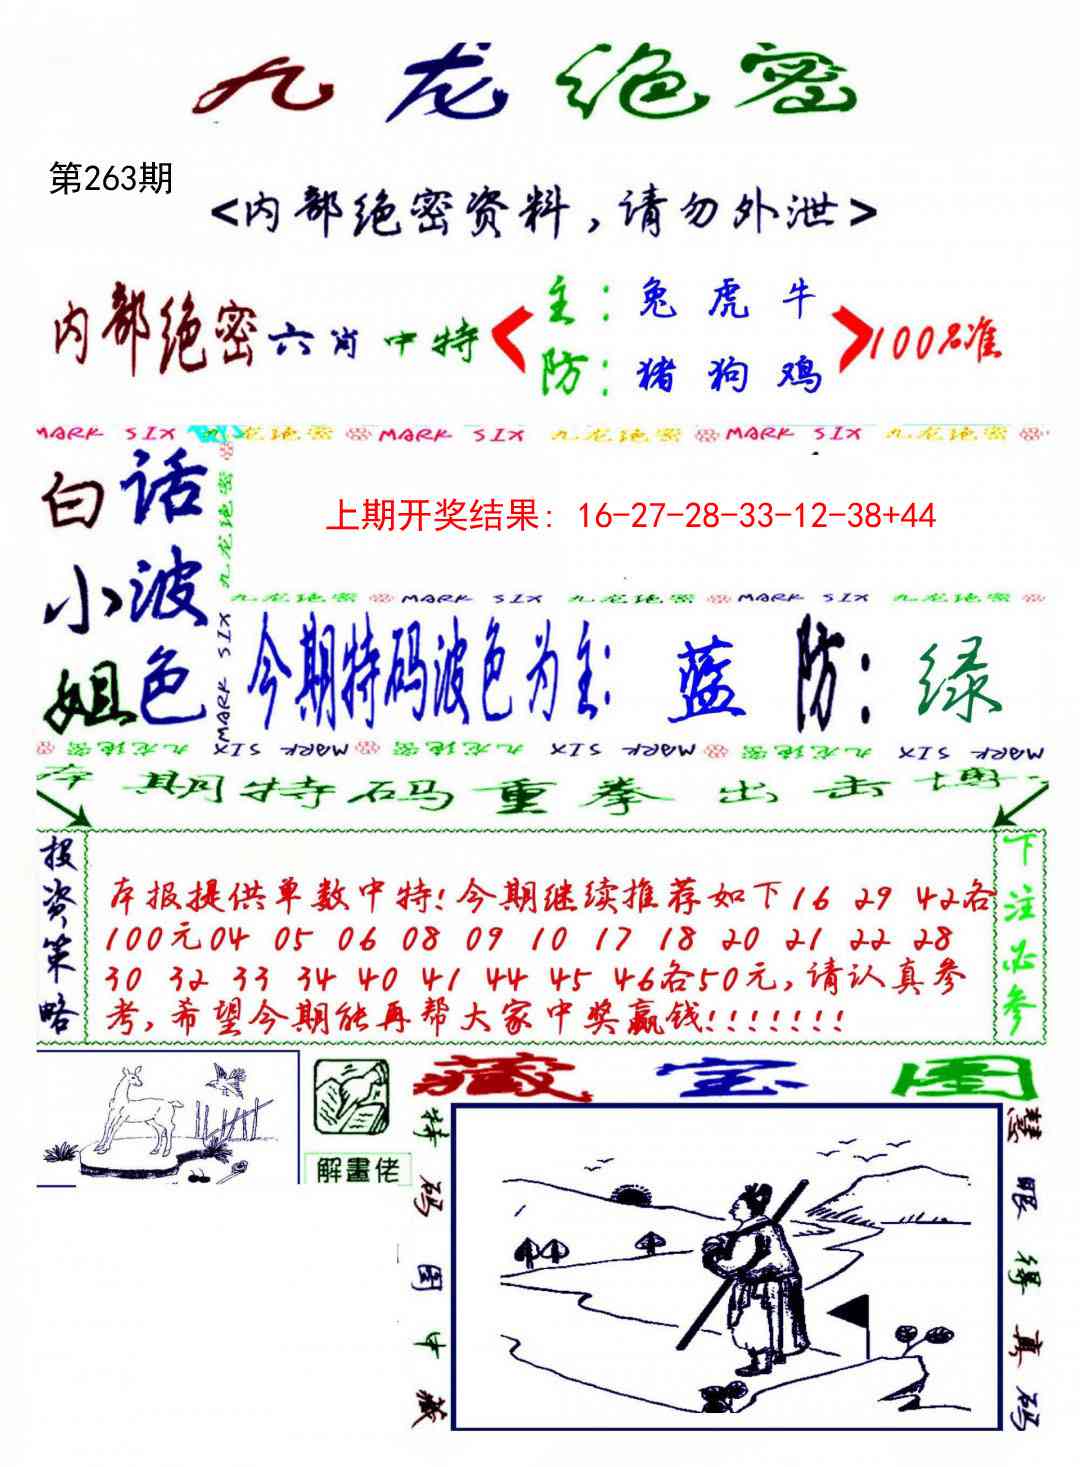 九龙绝密
第263期
<内部绝密资料,请勿外泄>
内部绝密六肖中特
主:兔 虎 牛
防:猪 狗 鸡
100%准
MARK SIX 九龙绝密 MARK SIX 九龙绝密 MARK SIX 九龙绝密
白小姐
话波色
九龙绝密
MARK SIX
上期开奖结果: 16-27-28-33-12-38+44
九龙绝密 MARK SIX 九龙绝密 MARK SIX 九龙绝密
今期特码波色为主: 蓝 防: 绿
九龙绝密 MARK SIX 九龙绝密 MARK SIX 九龙绝密 MARK SIX
本期特码重拳出击博
投资策略
本报提供单数中特!今期继续推荐如下16 29 42各
100元04 05 06 08 09 10 17 18 20 21 22 28
30 32 33 34 40 41 44 45 46各50元,请认真参
考,希望今期能再帮大家中奖赢钱!!!!!!!
下注必参
解畫佬
藏宝图
特码图中藏
慧眼得真码